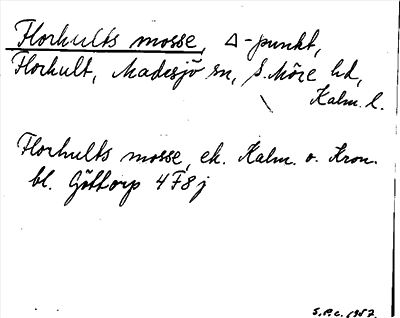 Florhults mosse, Δ-punkt,
Florhult, Madesjö sn, S. Möre hd,
Kalm. l.
Florhults mosse, ek. Kalm. o. Kron.
bl. Göttorp 4F8j
S.P.C. 1957.